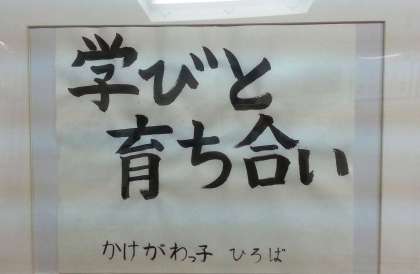 学びと
育ち合い
かけがわっ子 ひろば